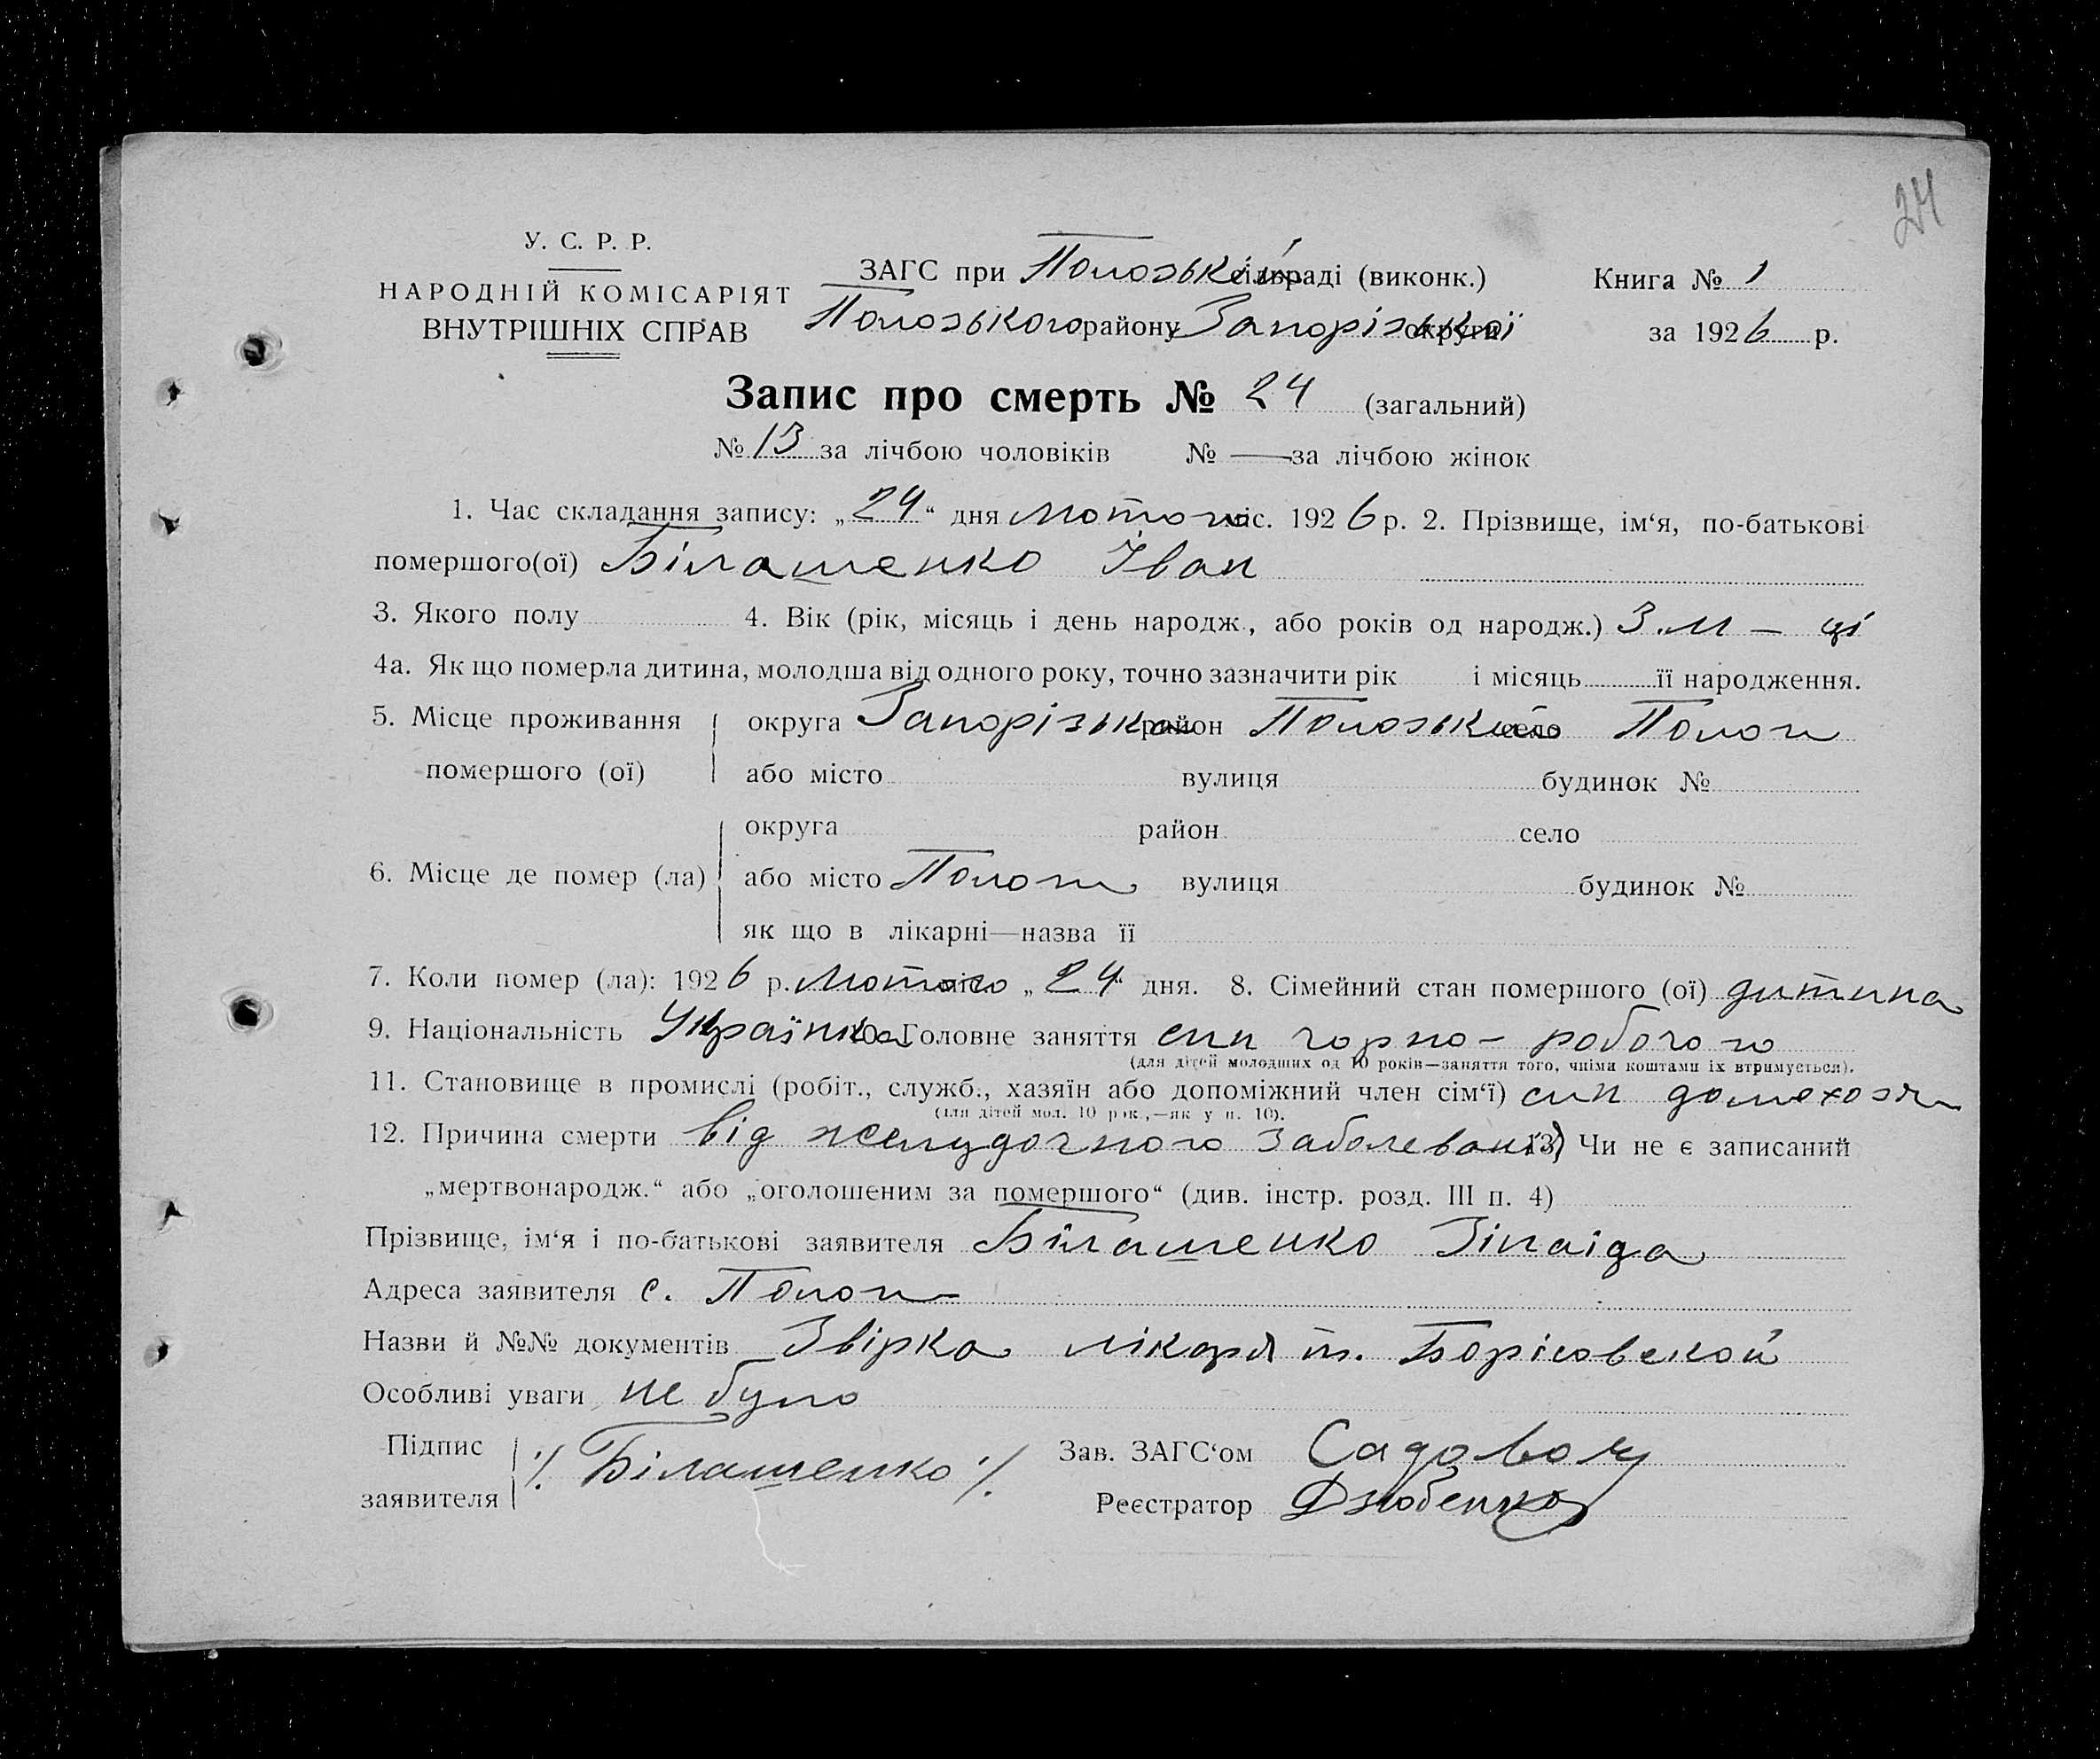 24
У. С. Р. Р.
НАРОДНІЙ КОМІСАРІЯТ
ВНУТРІШНІХ СПРАВ
ЗАГС при Пологській сільраді (виконк.)
Пологського району Запорізької округи
Книга № 1
за 1926 р.
Запис про смерть № 24 (загальний)
№ 13 за лічбою чоловіків № — за лічбою жінок
1. Час складання запису: „24“ дня лютого міс. 1926 р. 2. Прізвище, ім‘я, по-батькові
помершого(ої) Білашенко Іван
3. Якого полу 4. Вік (рік, місяць і день народж., або років од народж.) 3 м – ці
4а. Як що померла дитина, молодша від одного року, точно зазначити рік і місяць її народження.
5. Місце проживання помершого (ої) округа Запорізька район Пологський село Пологи
або місто вулиця будинок №
6. Місце де помер (ла) округа район село
або місто Пологи вулиця будинок №
як що в лікарні—назва її
7. Коли помер (ла): 1926 р. Лютого міс. „24“ дня. 8. Сімейний стан помершого (ої) дитина
9. Національність Українка 10. Головне заняття син чорно-робочого
(для дітей молодших од 10 років—заняття того, чиїми коштами їх втримується).
11. Становище в промислі (робіт., служб., хазяїн або допоміжний член сім‘ї) син домохозяи
(для дітей мол. 10 рок.,—як у п. 10).
12. Причина смерти від желудочного заболеванія 13) Чи не є записаний
„мертвонародж.“ або „оголошеним за помершого“ (див. інстр. розд. III п. 4)
Прізвище, ім‘я і по-батькові заявителя Білашенко Зінаіда
Адреса заявителя с. Пологи
Назви й №№ документів Звірка лікаря т. Борісовской
Особливі уваги не було
Підпис заявителя ./. Білашенко ./. Зав. ЗАГС‘ом Садовой
Реєстратор Дзюбенко